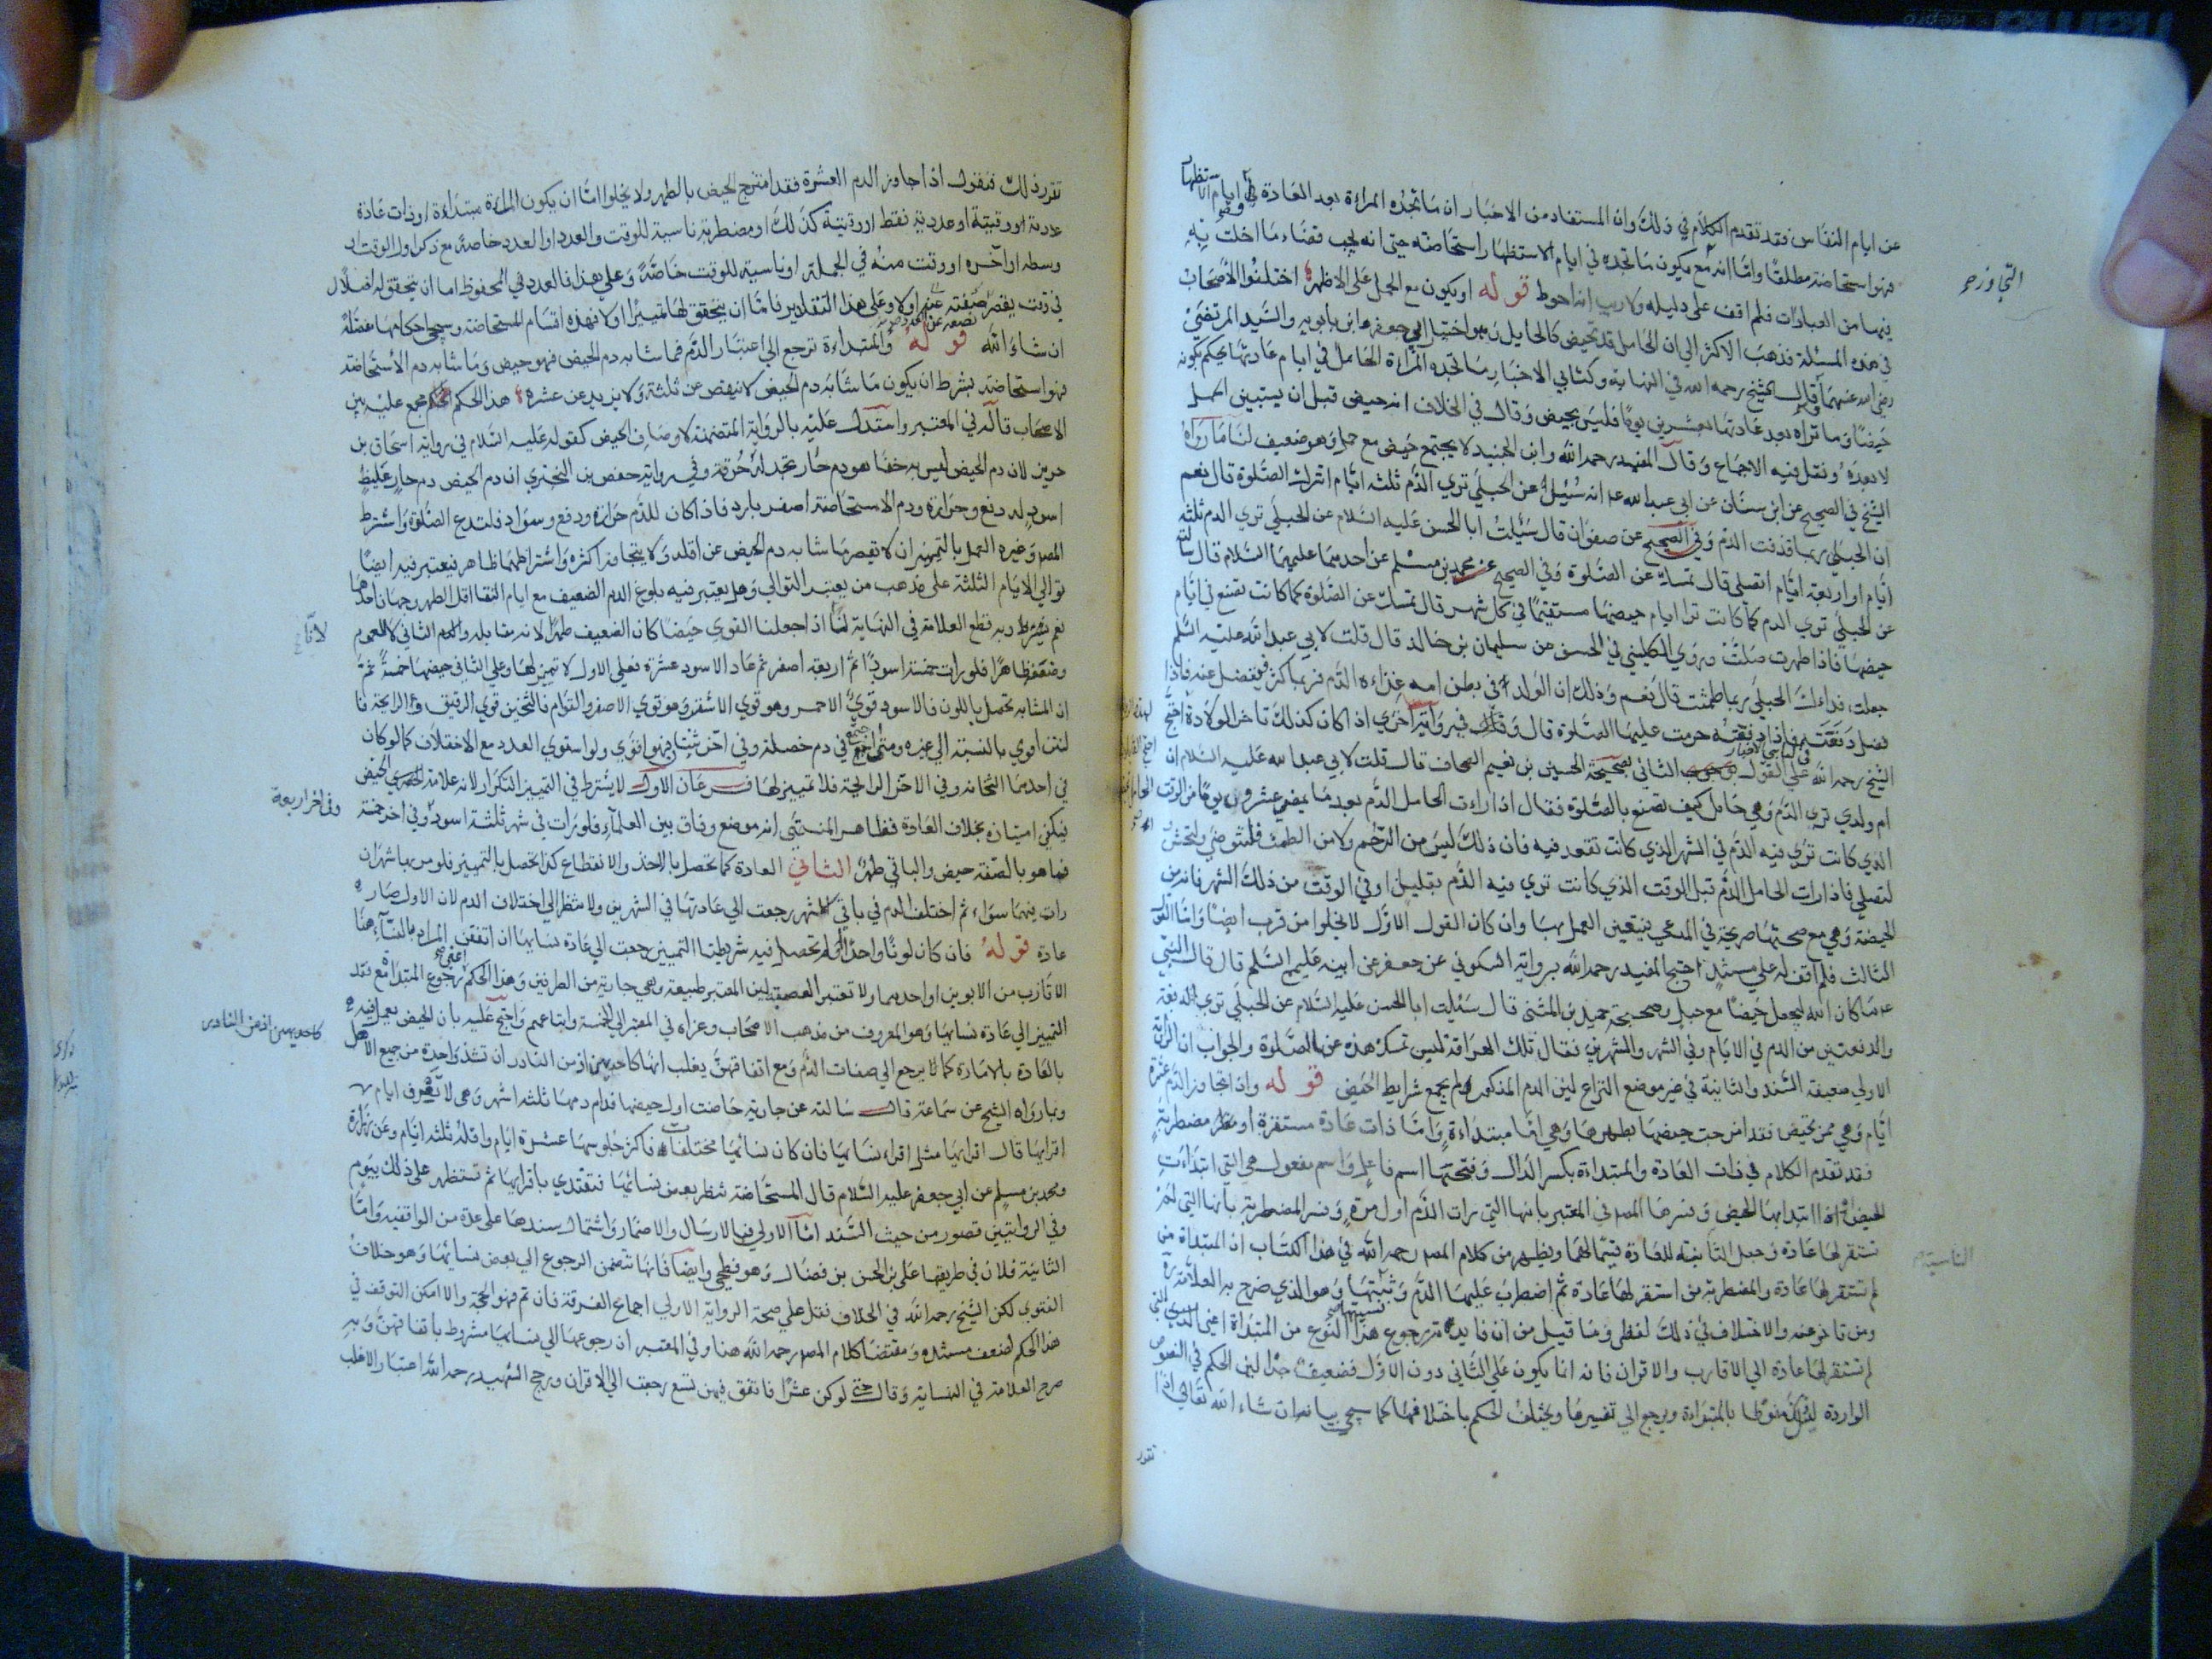 عن ايام النفاس فقد تقدم الكلام في ذلك وان المستفاد من الاخبار ان ما تجده المراءة بعد العادة في ايام الاستظهار
فهو استحاضة مطلقا واما انه مع يكون ما تجده في ايام الاستظهار استحاضة حتى انه يجب قضاء ما اخلت به
فيها من العبادات فلم اقف على دليله ولا ريب انه احوط قوله او يكون مع الحمل على الاظهر اختلفوا الاصحاب
في هذه المسئلة فذهب الاكثر الى ان الحامل قد تحيض كالحايل وهو اختيار ابي جعفر ابن بابويه والسيد المرتضى
رضي الله عنهما وقال الشيخ رحمه الله في النهاية وكتابي الاخبار ما تجده المراءة الحامل في ايام عادتها يحكم بكونه
حيضا وما تراه بعد عادتها بعشرين يوما فليس بحيض وقال في الخلاف انه حيض قبل ان يستبين الحمل
لا بعده ونقل فيه الاجماع وقال المفيد رحمه الله وابن الجنيد لا يجتمع حيض مع حمل وهو ضعيف لنا ما رواه
الشيخ في الصحيح عن ابن سنان عن ابي عبد الله ع انه سئل عن الحبلى ترى الدم ثلثة ايام اتترك الصلوة قال نعم
ان الحبلى ربما قذفت الدم وفي الصحيح عن صفوان قال سئلت ابا الحسن عليه السلام عن الحبلى ترى الدم ثلثة
ايام او اربعة ايام اتصلى قال تمسك عن الصلوة وفي الصحيح عن محمد بن مسلم عن احدهما عليهما السلام قال سالته
عن الحبلى ترى الدم كما كانت ترا ايام حيضها مستقيما في كل شهر قال تمسك عن الصلوة كما كانت تصنع في ايام
حيضها فاذا طهرت صلت وروى الكليني في الحسن عن سليمان بن خالد قال قلت لابي عبد الله عليه السلم
جعلت فداءك الحبلى ربما طمثت قال نعم وذلك ان الولد في بطن امه غذاءه الدم فربما كثر ففضل عنه فاذا
فضل دفقته فاذا دفقته حرمت عليها الصلوة قال وفي رواية اخرى اذا كان كذلك تاخر الولادة احتج
الشيخ رحمه الله على القول الثاني بصحيحة الحسين بن نعيم الصحاف قال قلت لابي عبد الله عليه السلام ان
ام ولدي ترى الدم وهي حامل كيف تصنع بالصلوة فقال اذا راءت الحامل الدم بعد ما يمضي عشرون يوما من الوقت
الذي كانت ترى فيه الدم في الشهر الذي كانت تقعد فيه فان ذلك ليس من الرحم ولا من الطمث فلتتوضى ولتحتش
لتصلي فاذا رات الحامل الدم قبل الوقت الذي كانت ترى فيه الدم بقليل او في الوقت من ذلك الشهر فانه من
الحيضة وهي مع صحتها صريحة في المدعي فيتعين العمل بها وان كان القول الاول لا يخلوا من قرب ايضا واما القول
الثالث فلم اقف له على مستند احتج المفيد رحمه الله برواية السكوني عن جعفر عن ابيه عليهم السلم قال قال النبي
ما كان الله ليجعل حيضا مع حبل وصحيحة حميد بن المثنى قال سئلت ابا الحسن عليه السلام عن الحبلى ترى الدفقة
والدفقتين من الدم في الايام وفي الشهر والشهرين فقال تلك الهراقة ليس تمسك هذه عن الصلوة والجواب ان الرواية
الاولى ضعيفة السند والثانية في غير موضع النزاع لان الدم المذكور لم يجمع شرايط الحيض قوله واذا تجاوز الدم عشرة
ايام وهي ممن تحيض فقد امتزجت حيضها بطهرها وهي اما مبتداءة واما ذات عادة مستقرة او مضطربة
فقد تقدم الكلام في ذات العادة والمبتداءة بكسر الدال وفتحها اسم فاعل واسم مفعول هي التي ابتداءت
الحيض او ابتداها الحيض وفسرها المص في المعتبر بانها التي رات الدم اول مرة وفسر المضطربة بانها التي لم
تستقر لها عادة وجعل الناسية للعادة قسيما لهما ويظهر من كلام المص رحمه الله في هذا الكتاب ان المبتداة من
لم تستقر لها عادة والمضطربة من استقر لها عادة ثم اضطرب عليها الدم ونسيتها وهو الذي صرح به العلامة
ومن تاخر عنه والاختلاف في ذلك لفظي وما قيل من ان فايدته رجوع هذا النوع من المبتداة اعني التي
لم تستقر لها عادة الى الاقارب والاقران فانه انما يكون على الثاني دون الاول فضعيف جدا لان الحكم في النصوص
الواردة ليس منوطا بالمبتداءة ويرجع الى تفسيرها ويختلف الحكم باختلافها كما سيجي بيانه ان شاء الله تعالى اذا
تقرر
التجاوزح
الناسية
تقرر ذلك فنقول اذا جاوز الدم العشرة فقد امتزج الحيض بالطهر ولا يخلوا اما ان يكون المراءة مبتداءة او ذات عادة
عددية او وقتية او عددية فقط او وقتية كذلك او مضطربة ناسية للوقت والعدد او العدد خاصة مع ذكر اول الوقت او
وسطه او آخره او وقت منه في الجملة او ناسية للوقت خاصة وعلى هذا فالعدد في المحفوظ اما ان يتحقق له اضلال
في وقت يقصر نصفه عنه او لا وعلى هذا التقادير فاما ان يتحقق لها تميز او لا فهذه اقسام المستحاضة وسيجي احكامها مفصلة
ان شاء الله قوله والمبتداءة ترجع الى اعتبار الدم فما شابه دم الحيض فهو حيض وما شابه دم الاستحاضة
فهو استحاضة بشرط ان يكون ما شابه دم الحيض لا ينقص عن ثلثة ولا يزيد عن عشرة هذا الحكم مجمع عليه بين
الاصحاب قاله في المعتبر واستدل عليه بالرواية المتضمنة لاوصاف الحيض كقوله عليه السلام في رواية اسحاق بن
جرير لان دم الحيض ليس به خفا هو دم حار تجد له حرقة وفي رواية حفص بن البختري ان دم الحيض دم حار غليظ
اسود له دفع وحرارة ودم الاستحاضة اصفر بارد فاذا كان للدم حرارة ودفع وسواد فلتدع الصلوة واشترط
المص وغيره العمل بالتميز ان لا يقصر ما شابه دم الحيض عن اقله ولا يتجاوز اكثره واشتراطهما ظاهر فيعتبر فيه ايضا
توالي الايام الثلثة على مذهب من يعتبر التوالي وهل يعتبر فيه بلوغ الدم الضعيف مع ايام النقا اقل الطهر وجهان احدهما
نعم وبه قطع العلامة في النهاية لنا اذا جعلنا القوي حيضا كان الضعيف طهرا لانه مقابله والدم الثاني لا لعموم
وضعفه ظاهر فلو رات خمسة اسودا ثم اربعة اصفر ثم عاد الاسود عشرة فعلى الاول لا تميز لها وعلى الثاني حيضها خمسة ثم
ان المشابهة تحصل باللون فالاسود قوي الاحمر وهو قوي الاشقر وهو قوي الاصفر والقوام فالثخين قوي الرقيق والرايحة فا
لنتن اقوى بالنسبة الى غيره ومتى اجتمع في دم خصلة وفي آخر ثنتان فهو اقوى ولو استوى العدد مع الاختلاف كما لو كان
في احدهما الثخانة وفي الاخر الرايحة فلا تميز لها فرعان الاول لا يشترط في التمييز التكرار لانه علامة الحيض
فيكفي امتيازه بخلاف العادة فظاهر المنتهى انه موضع وفاق بين العلماء فلو رات في شهر ثلثة اسود وفي اخر خمسة
فما هو بالصفة حيض والباقي طهر الثاني العادة كما تحصل بالاخذ والانقطاع كذا تحصل بالتمييز فلو مر بها شهران
رات فيهما سواء ثم اختلف الدم في باقي الشهر رجعت الى عادتها في الشهرين ولا تنظر الى اختلاف الدم لان الاول صار
عادة قوله فان كان لونا واحدا او لم تحصل فيه شريطتا التمييز رجعت الى عادة نسائها ان اتفقن المراد بالنساء هنا
الاقارب من الابوين او احدهما ولا تعتبر العصبة لان المعتبر طبيعة وهي جارية من الطرفين وهذا الحكم اعني رجوع المبتداة مع فقد
التمييز الى عادة نسائها وهو المعروف من مذهب الاصحاب وعزاه في المعتبر الى الخمسة واتباعهم واحتج عليه بان الحيض يعمل فيه
بالعادة بالامارة كما لا يرجع الى صفات الدم ومع اتفاقهن يغلب انها كاحديهن اذ من النادر ان تشذ واحدة من جميع الاهل
وبما رواه الشيخ عن سماعة قال سالته عن جارية حاضت اول حيضها فدام دمها ثلثة اشهر وهي لا تعرف ايام
اقرائها قال اقرائها مثل اقراء نسائها فان كان نسائها مختلفات فاكثر جلوسها عشرة ايام واقله ثلثة ايام وعن زرارة
ومحمد بن مسلم عن ابي جعفر عليه السلام قال المستحاضة تنظر بعض نسائها فتقتدي باقرائها ثم تستظهر على ذلك بيوم
وفي الروايتين قصور من حيث السند اما الاولى فبالارسال والاضمار واشتمال سندها على عدة من الواقفية واما
الثانية فلان في طريقها على بن الحسن بن فضال وهو فطحي وايضا فانها تتضمن الرجوع الى بعض نسائها وهو خلاف
الفتوى لكن الشيخ رحمه الله في الخلاف نقل على صحة الرواية الاولى اجماع الفرقة فان تم فهو الحجة والا امكن التوقف في
هذا الحكم لضعف مستنده ومقتضا كلام المص رحمه الله هنا وفي المعتبر ان رجوعها الى نسائها مشروط باتفاقهن وبه
صرح العلامة في النهاية وقال حتى لو كن عشرا فاتفق فيهن تسع رجعت الى الاقران ورجح الشهيد رحمه الله اعتبار الاغلب
وفي اخر اربعة
كاحديهن اذ من النادر